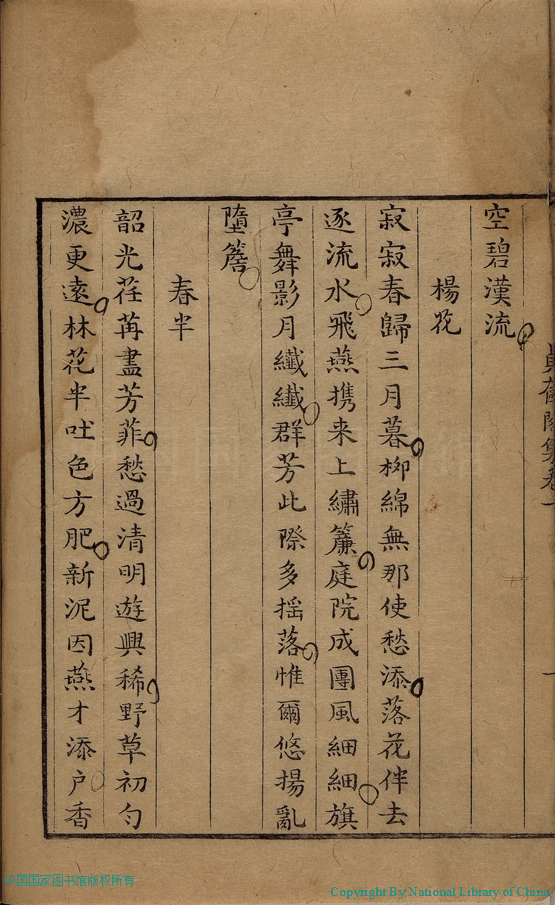 空碧漢流
楊花
寂寂春歸三月暮柳綿無那使愁添落花伴去
逐流水飛燕携来上繡簾庭院成團風細細旗
亭舞影月纖纖群芳此際多揺落惟爾悠揚亂
墮簷
春半
韶光荏苒盡芳菲愁過清明遊興稀野草初勻
濃更遠林花半吐色方肥新泥因燕才添户香
國国家图书馆版权所有
Copyright By National Library of China